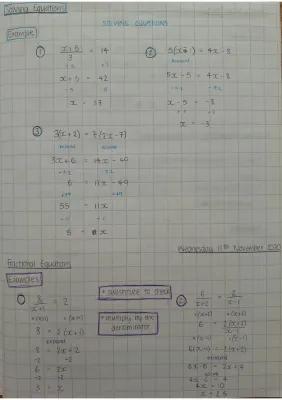 Solving Equations
SOLVING EQUATIONS
Example
①
x+5 / 3 = 14
x+5 = 42
-5 -5
x = 37
②
= 4x-8
expand
5x-5 = 4x-8
x-5 = -8
x = -3
③
3(x+2) = 7(2x-7)
expand expand
3x+6 =
6 = 11x-49
+49 +49
55 = 11x
5 = x
Wednesday 11th November 2020
Fractional Equations
Examples
①
8 / x+1 = 2
×(x+1) ×(x+1)
8 = 2(x+1)
expand
8 = 2x+2
-2 -2
6 = 2x
÷2 ÷2
3 = x
* substitute to check
* multiply by the denominator
②
6 / x+2 = 2 / x-1
×(x+2) ×(x+2)
6 = 2(x+2) / x-1
×(x-1) ×(x-1)
6(x-1) = 2(x+2)
expand
6x-6 = 2x+4
4x = 10
x = 2.5